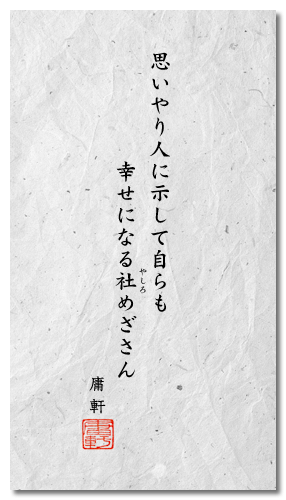 思いやり人に示して自らも
幸せになる社めざさん
やしろ
庸軒
庸軒